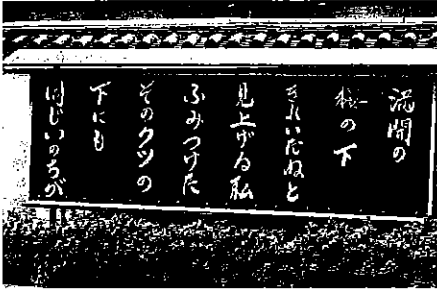 満開の
桜の下
きれいだねと
見上げる私
ふみつけた
そのクツの
下にも
同じいのちが